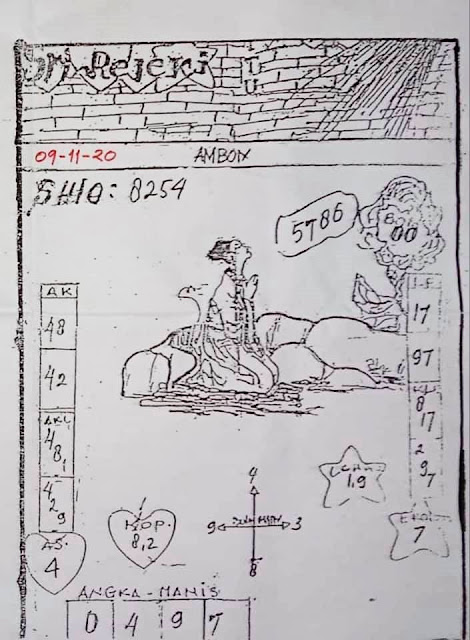 Sri Rejeki
09-11-20 AMBON
SHIO: 8254
5786
00
AK
48
42
AKL
4
8
1
4
2
9
AS.
4
KOP.
8,2
4
9
3
8
1,9
17
97
8
17
2
9
7
EKOR
7
ANGKA-MANIS
0 4 9 7